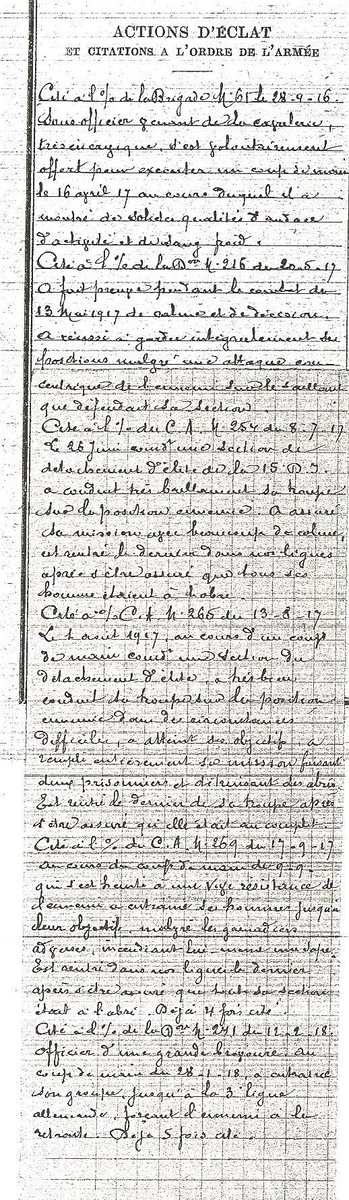 ACTIONS D'ÉCLAT
ET CITATIONS A L'ORDRE DE L'ARMÉE
Cité à l'% de la Brigade N° 61 le 28-9-16.
Sous officier venant de la cavalerie,
très énergique, s'est volontairement
offert pour exécuter un coup de main
le 16 avril 17 au cours duquel il a
montré de solides qualités d'audace
d'activité et de sang froid.
Cité à l'% de la Don N° 216 du 20-5-17
A fait preuve pendant le combat du
13 Mai 1917 de calme et de décision.
A réussi à garder intégralement ses
positions malgré une attaque con-
centrique de l'ennemi sur le saillant
que défendait sa section.
Cité à l'% du C.A. N° 254 du 8-7-17
Le 25 Juin comdt une section de
détachement d'élite de la 15 D.I.
a conduit très brillamment sa troupe
sur la position ennemie. A assuré
sa mission avec beaucoup de calme,
est rentré le dernier dans nos lignes
après s'être assuré que tous ses
hommes étaient à l'abri.
Cité à l'% C.A. N° 266 du 13-8-17
Le 1 août 1917, au cours d'un coup
de main comdt une section du
détachement d'élite, a très bien
conduit sa troupe sur la position
ennemie dans des circonstances
difficiles, a atteint ses objectifs, a
rempli entièrement sa mission faisant
deux prisonniers et détruisant des abris
Est rentré le dernier de sa troupe après
s'être assuré qu'elle était au complet.
Cité à l'% du C.A. N° 269 du 17-9-17
au cours du coup de main du 9-9-
qui s'est heurté à une vive résistance de
l'ennemi a entrainé ses hommes jusqu'à
leur objectif, malgré les grenadiers
adverses, incendiant lui-même une sape
Est rentré dans nos lignes le dernier
après s'être assuré que toute sa section
était à l'abri. Déjà 4 fois cité.
Cité à l'% de la Don N° 241 du 12-2-18.
Officier d'une grande bravoure. Au
coup de main du 28-1-18, a entraîné
son groupe jusqu'à la 3e ligne
allemande, forçant l'ennemi à la
retraite. Déjà 5 fois cité.